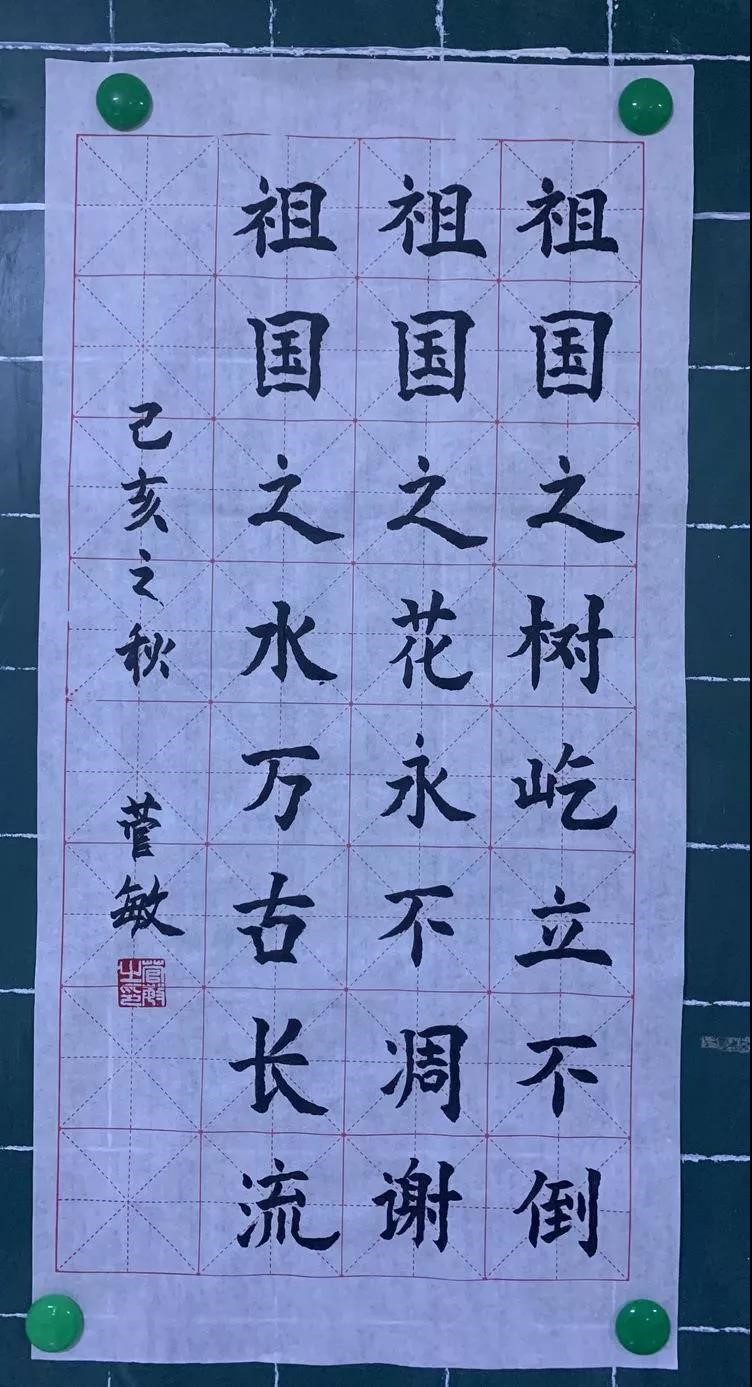 祖国之树屹立不倒
祖国之花永不凋谢
祖国之水万古长流
己亥之秋 菅敏
菅敏之印